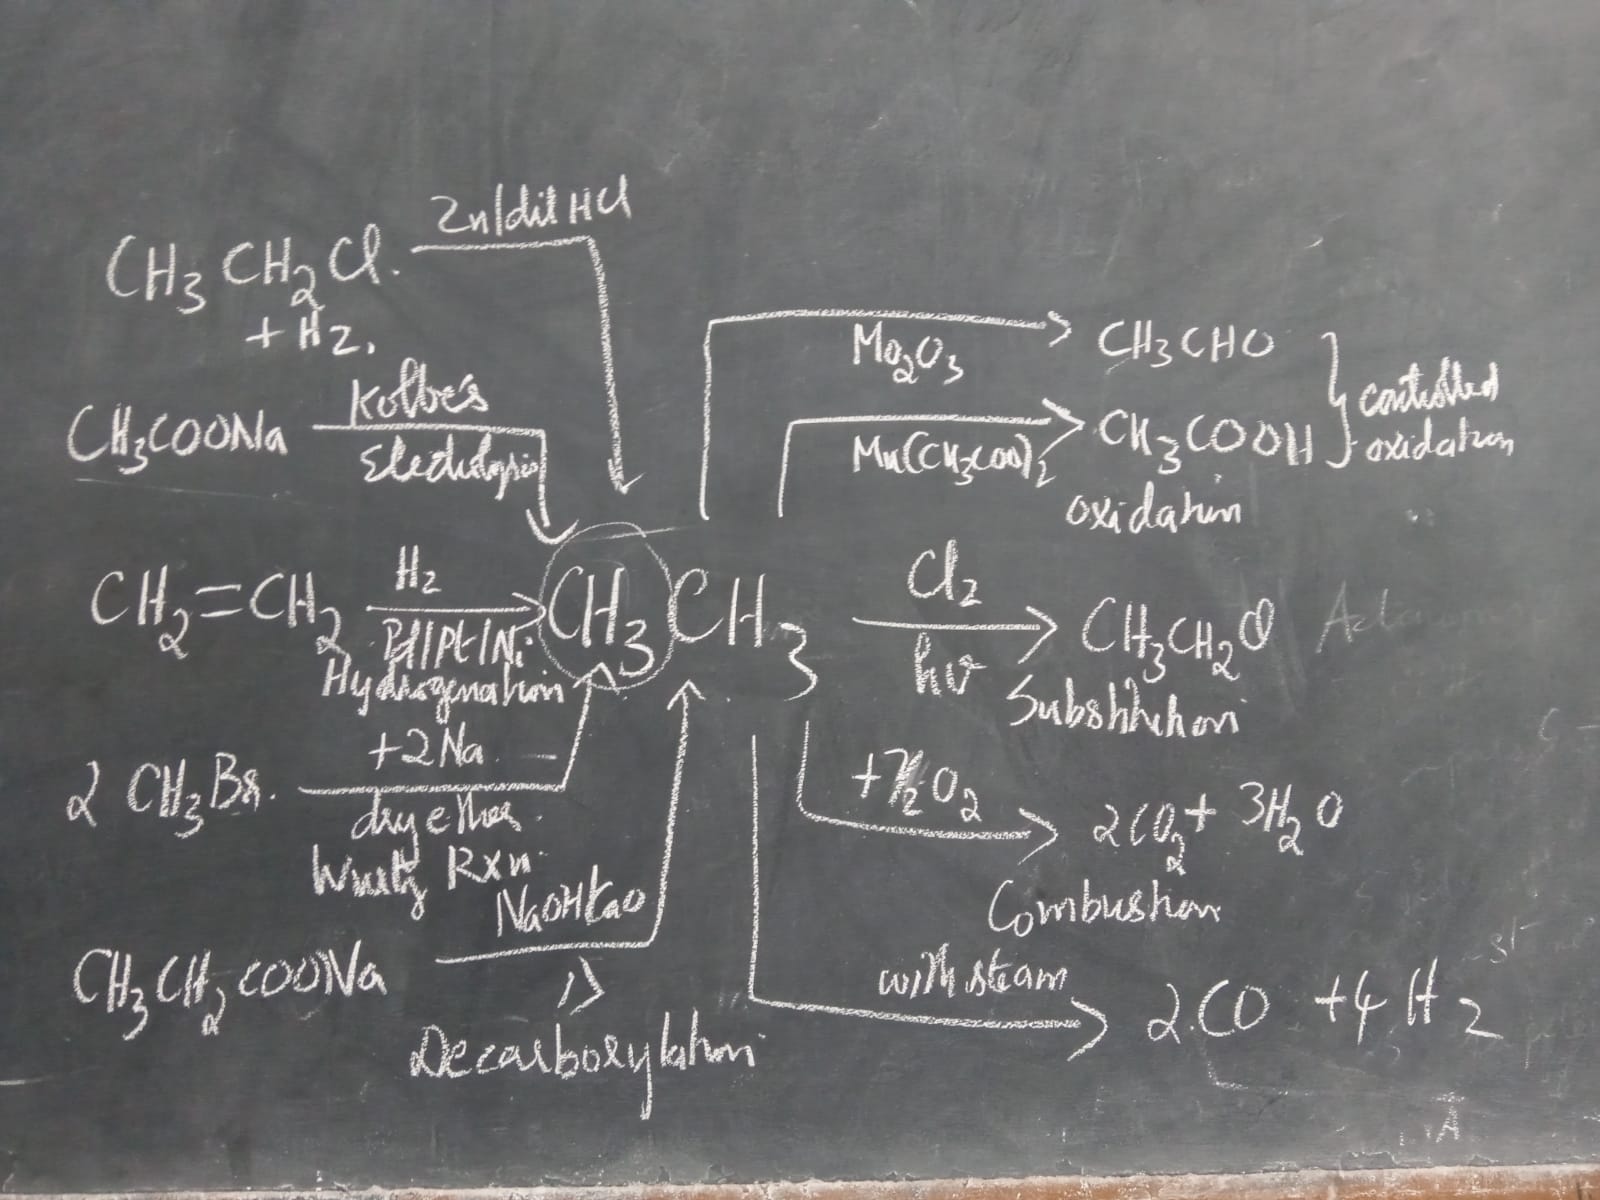 Zn/dil HCl
CH₃ CH₂ Cl.
+ H2.
CH₃COONa
Kolbe's
Electrolysis
CH₂=CH₂
H₂
Pd/Pt/Ni
Hydrogenation
2 CH₃Br.
+2Na
dry ether
Wurtz Rxn
CH₃CH₂COONa
NaOH+CaO
Δ
Decarboxylation
CH₃CH₃
Mo₂O₃
CH₃CHO
Mn(CH₃COO)₂
CH₃COOH
controlled
oxidation
oxidation
Cl₂
hν
CH₃CH₂Cl
Substitution
+7/2O₂
2CO₂+ 3H₂O
Combustion
with steam
2.CO +4H₂